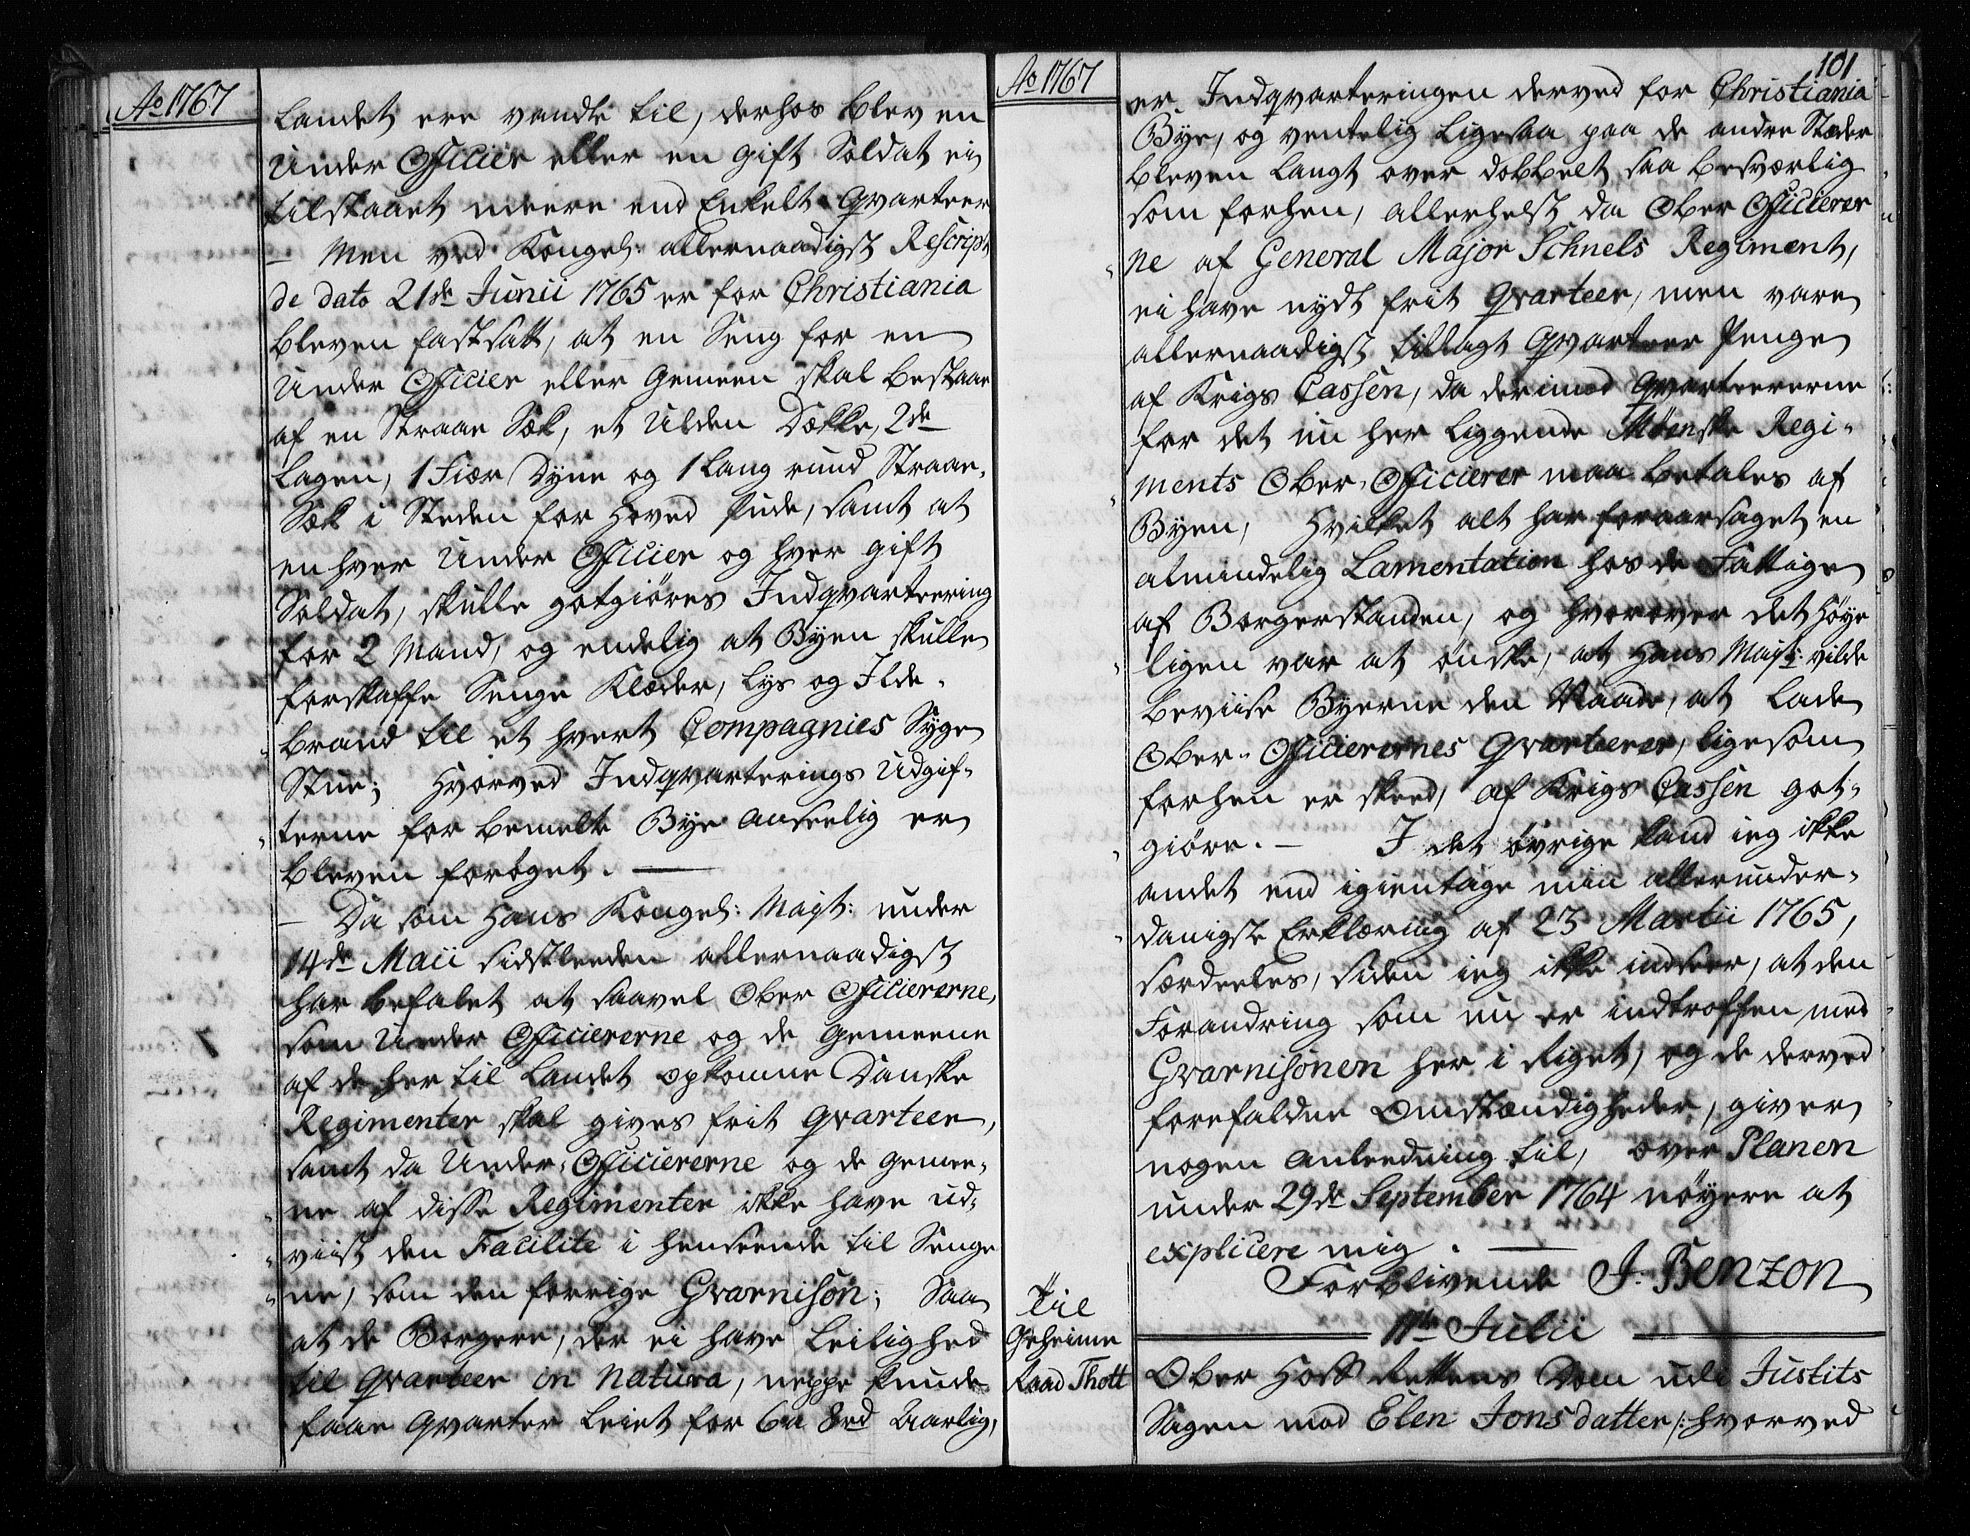 Ao 1767
Landet ere vandte til, derhos blev en
Under Officier eller en gift Soldat ei
tilstaaet meere end Enkelt Qvarteer
– Men ved Kongel: allernaadigst Rescript
de dato 21de Junii 1765 er for Christiania
bleven fastsatt, at en Seng for en
Under Officier eller Gemeen skal bestaae
af en Straae Sæk, et Ulden Dække, 2de
Lagen, 1 Fiær Dyne og 1 lang rund Straae-
Sæk i Steden for Hoved Pude, samt at
en hver Under Officier og hver gift
Soldat, skulle gotgiøres Indqvarteering
for 2 Mand, og endelig at Byen skulle
forskaffe Senge Klæder, Lys og Ilde-
brand til et hvert Compagnies Syge
Stue; Hvorved Indqvarterings Udgif-
terne for bemelte Bye anseelig er
bleven forøget. —
– Da som Hans Kongel: Mayt: under
14de Maii sidstleeden allernaadigst
har befalet at saavel Ober Officiererne,
som Under Officiererne og de Gemeene
af de her til Landet opkomne Danske
Regimenter skal gives frit Qvarteer,
samt da Under-Officiererne og de Gemee-
ne af disse Regimenter ikke have ud-
viist den Facilite i henseende til Senge
ne, som den forrige Gvarnison; Saa
at de Borgere, der ei have Leilighed
til Qvarteer in Natura, neppe kunde
faae Qvarter Leiet for 6 a 8rd Aarlig,
Ao 1767
101
er Indqvarteringen derved for Christiania
Bye, og ventelig ligesaa paa de andre Stæder
bleven langt over dobbelt saa besværlig
som forhen, allerhelst da Ober Officierer
ne af General Major Schnels Regiment,
ei have nydt frit Qvarteer, men vare
allernaadigst tillagt Qvarteer Penge
af Krigs Cassen, da derimod Qvarteererne
for det nu her liggende Møenske Regi-
ments Ober-Officierer maa betales af
Byen, Hvilket alt har foraarsaget en
almindelig Lamentation hos de Fattige
af Borgerstanden, og hvorover det Høye
ligen var at ønske, at Hans Mayt: vilde
beviise Byerne den Naade, at lade
Ober-Officierernes Qvarteerer, ligesom
forhen er skeed, af Krigs Cassen got-
giøre. – I det øvrige kand ieg ikke
andet end igientage min allerunder-
danigste Erklæring af 23 Martii 1765,
særdeeles, siden ieg ikke indseer, at den
Forandring som nu er indtroffen med
Gvarnisonen her i Riget, og de derved
forefaldne Omstændigheder, giver
nogen anleedning til, over Planen
under 29de September 1764 nøyere at
explicere mig. —
Forblivende J. Benzon
11te Julii
Til
Geheime
Raad Thott
Ober Hoff Rettens Dom udi Justits
Sagen mod Elen Jonsdatter /: hvorved